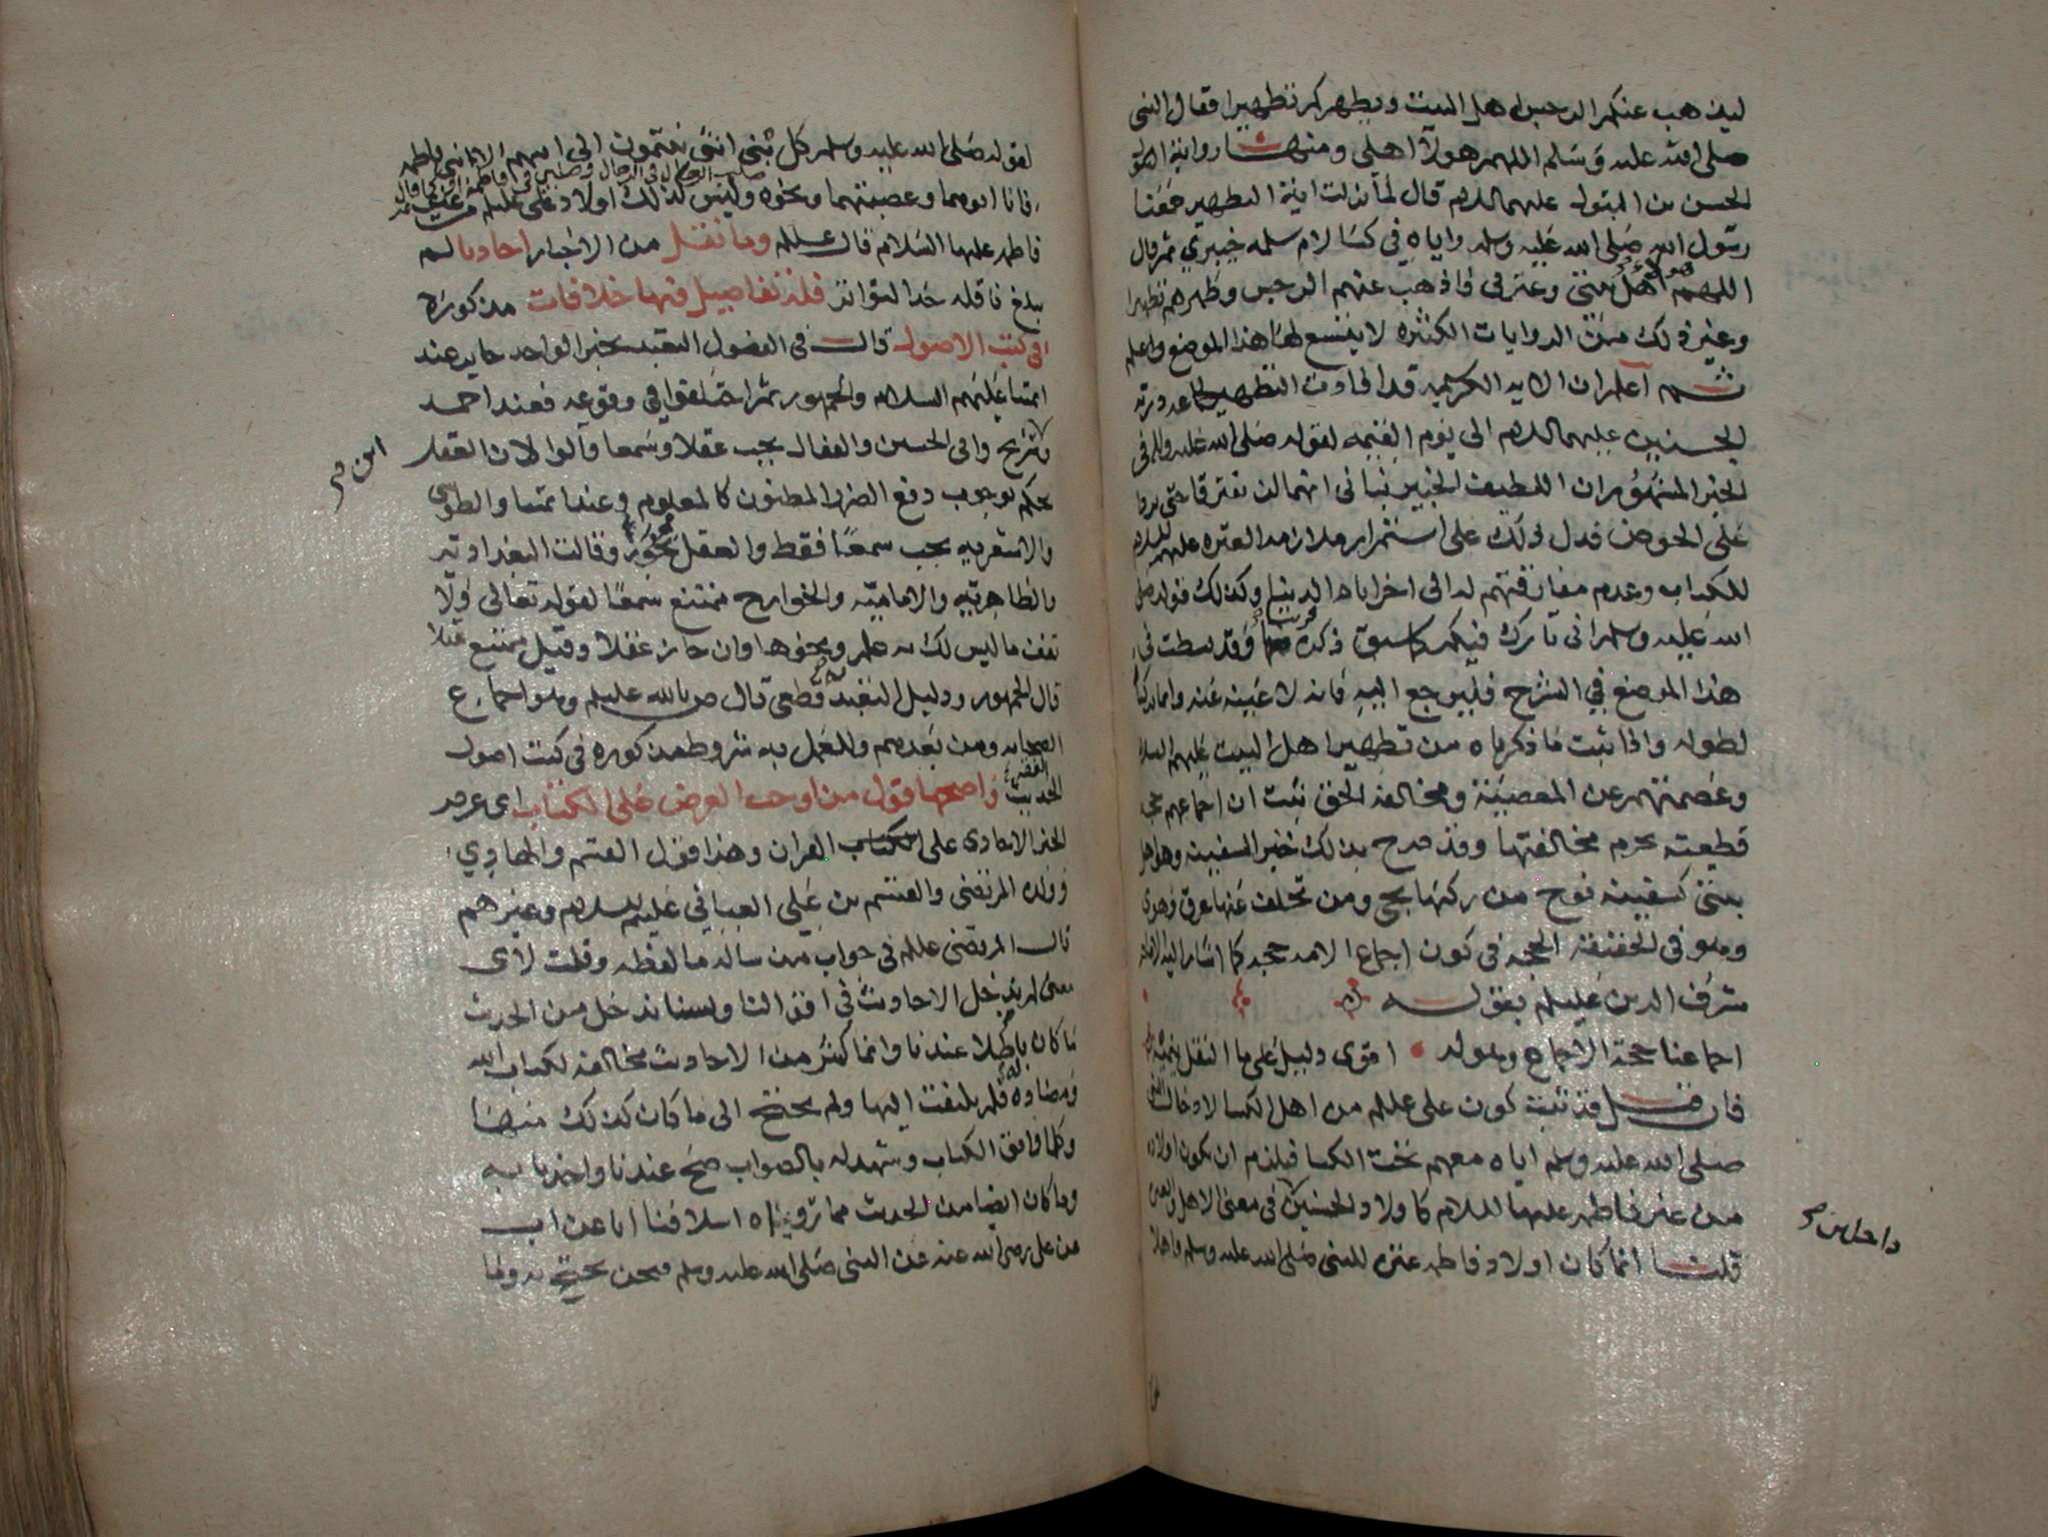 ليذهب عنكم الرجس اهل البيت ويطهركم تطهيرا فقال النبي
صلى الله عليه وسلم اللهم هولآ اهلي ومنها رواية
الحسن بن البتول عليهما السلام قال لما نزلت اية التطهير جمعنا
رسول الله صلى الله عليه وسلم واياه في كسا لام سلمه خيبري ثم قال
اللهم هولاء اهل بيتي وعترتي فاذهب عنهم الرجس وطهرهم تطهيرا
وغير ذلك من الروايات الكثيره لا يتسع لها هذا الموضع واعلم
ثم اعلم ان الايه الكريمه قد افادت التطهير
الحسنين عليهما السلام الى يوم القيمه لقوله صلى الله عليه وسلم في
الخبر المشهور ان اللطيف الخبير نباني انهما لن يفترقا حتى يردا
على الحوض فدل ذلك على استمرار ملازمه العتره عليهم السلام
للكتاب وعدم مفارقتهم له الى اخر ايام الدنيا وكذلك قوله صلى
الله عليه وسلم اني تارك فيكم كما سبق ذكره قريبا وقد بسطت في
هذا الموضع في الشرح فليرجع اليه فانه لا غنية عنه وانما تركنا
لطوله واذا ثبت ما ذكرناه من تطهير اهل البيت عليهم السلا
وعصمتهم عن المعصية ومخالفة الحق ثبت ان اجماعهم حجه
قطعية يحرم مخالفتها وقد صرح بذلك خبر السفينه وهو اهل
بيتي كسفينه نوح من ركبها نجى ومن تخلف عنها غرق وهوى
وهو في الحقيقة الحجه في كون اجماع الامه حجه كما اشار اليه الامام
شرف الدين عليلم بقوله
اجماعنا حجة الاجماع وهو له اقوى دليل على ما النقل ينميه
فان قيل قد ثبت كون علي عللم من اهل الكسا لادخال النبي
صلى الله عليه وسلم اياه معهم تحت الكسا فيلزم ان يكون اولاده
من غير فاطمه عليها السلام كاولاد الحسنين في معنى الاهل
قلت انما كان اولاد فاطمه عتره للنبي صلى الله عليه وسلم واهلا
لقوله صلى الله عليه وسلم كل بني انثى ينتمون الى ابيهم الا ابني فاطمه
فانا ابوهما وعصبتهما ونحوه وليس كذلك اولاد علي عليلم من غير
فاطمه عليها السلام قال عللم وما نقل من الاخبار احاديا لم
يبلغ ناقله حد التواتر فلذ تفاصيل فيها خلافات مذكورة
في كتب الاصول قال في الفصول التعبد بخبر الواحد جايز عند
ايمتنا عليهم السلام والجمهور ثم اختلفوا في وقوعه فعند احمد
وابن سريج وابي الحسين والقفال يجب عقلا وسمعا قالوا لان العقل
يحكم بوجوب دفع الضرر المظنون كالمعلوم وعند ايمتنا والطوسي
والاشعريه يجب سمعًا فقط والعقل يجوزه وقالت البغداديه
والظاهريّه والاماميّه والخوارج يمتنع سمعًا لقوله تعالى ولا
تقف ما ليس لك به علم ونحوها وان جاز عقلا وقيل يمتنع عقلا
قال الجمهور ودليل التعبد به قطعي قال عليلم وهو اجماع
الصحابه ومن بعدهم وللعمل به شروط مذكوره في كتب اصول
الحديث واصحها قول من اوجب العرض على الكتاب اي عرض
الخبر الاحادي على الكتاب القران وهذا قول القسم والهادي
وولده المرتضى والقسم بن علي العياني عليهم السلام وغيرهم
قال المرتضى عللم في جواب من ساله ما لفظه وقلت لاي
معنى لم ندخل الاحاديث في اقوالنا ولسنا ندخل من الحديث
ما كان باطلا عندنا وانما كثير من الاحاديث مخالفه لكتاب الله
ومضاده له فلم نلتفت اليها ولم نحتج الى ما كان كذلك منها
وكلما وافق الكتاب وشهد له بالصواب صح عندنا واخذنا به
وما كان ايضا من الحديث مما ترويه اسلافنا ابا عن اب
عن علي رضي الله عنه عن النبي صلى الله عليه وسلم فنحن نحتج به وما